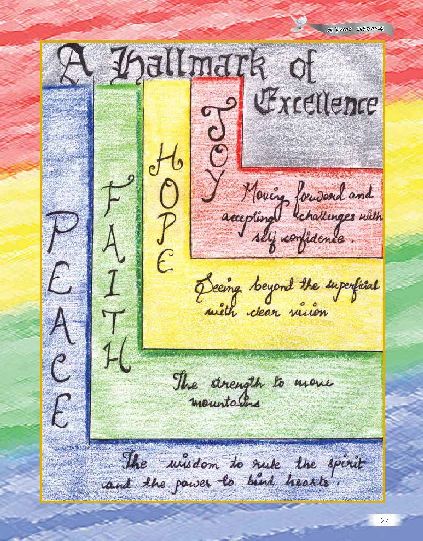 A Hallmark of
Excellence
JOY
Moving forward and
accepting challenges with
self confidence.
HOPE
Seeing beyond the superficial
with clear vision
FAITH
The strength to move
mountains
PEACE
The wisdom to rule the spirit
and the power to bind hearts.
27